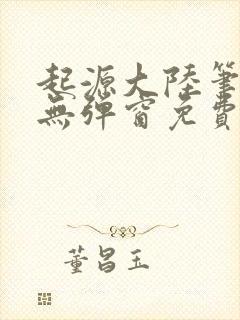 起源大陸筆
無彈窗免費
董昌玉